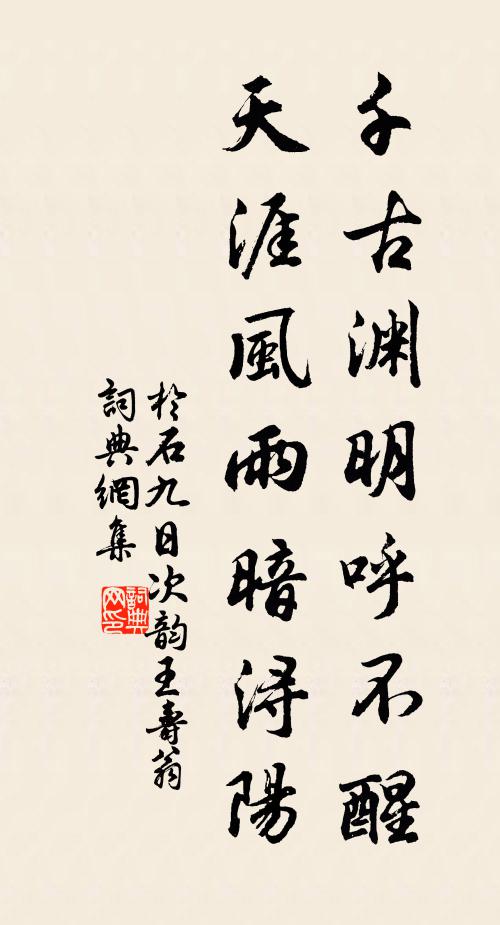 千古渊明呼不醒
天涯風雨暗潯陽
於石九日次韵王壽翁
詞典網集
詞典网印